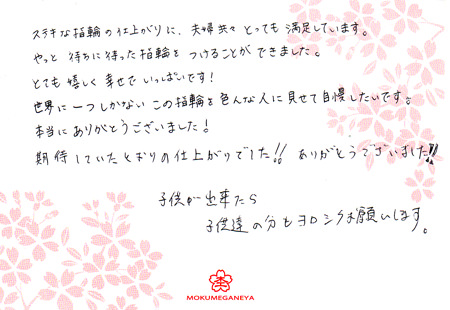 ステキな指輪の仕上がりに、夫婦共々とっても満足しています。
やっと待ちに待った指輪をつけることができました。
とても嬉しく幸せでいっぱいです！
世界に一つしかないこの指輪を色んな人に見せて自慢したいです。
本当にありがとうございました！
期待していたとおりの仕上がりでした!! ありがとうございました!!
子供が出来たら
子供達の分もヨロシクお願いします。
MOKUMEGANEYA